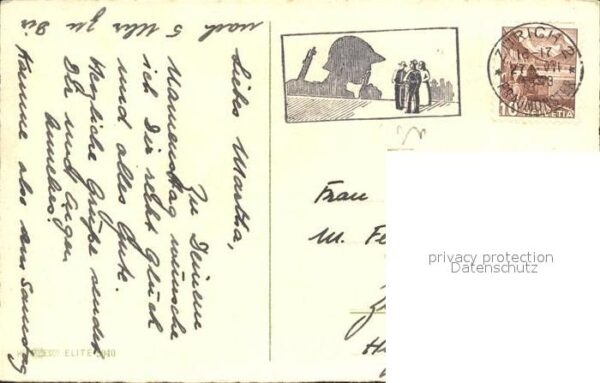 Liebe Martha,
Zu Deinem
Namenstag wünsche
ich Dir recht Glück
und alles Gute.
Herzliche Grüße sendet
Dir und Eugen
Annelies.
Komme also am Samstag
nach 5 Uhr zu Dir
ZÜRICH 2
10 HELVETIA
Frau
M. Fe
privacy protection
Datenschutz
ELITE 3040